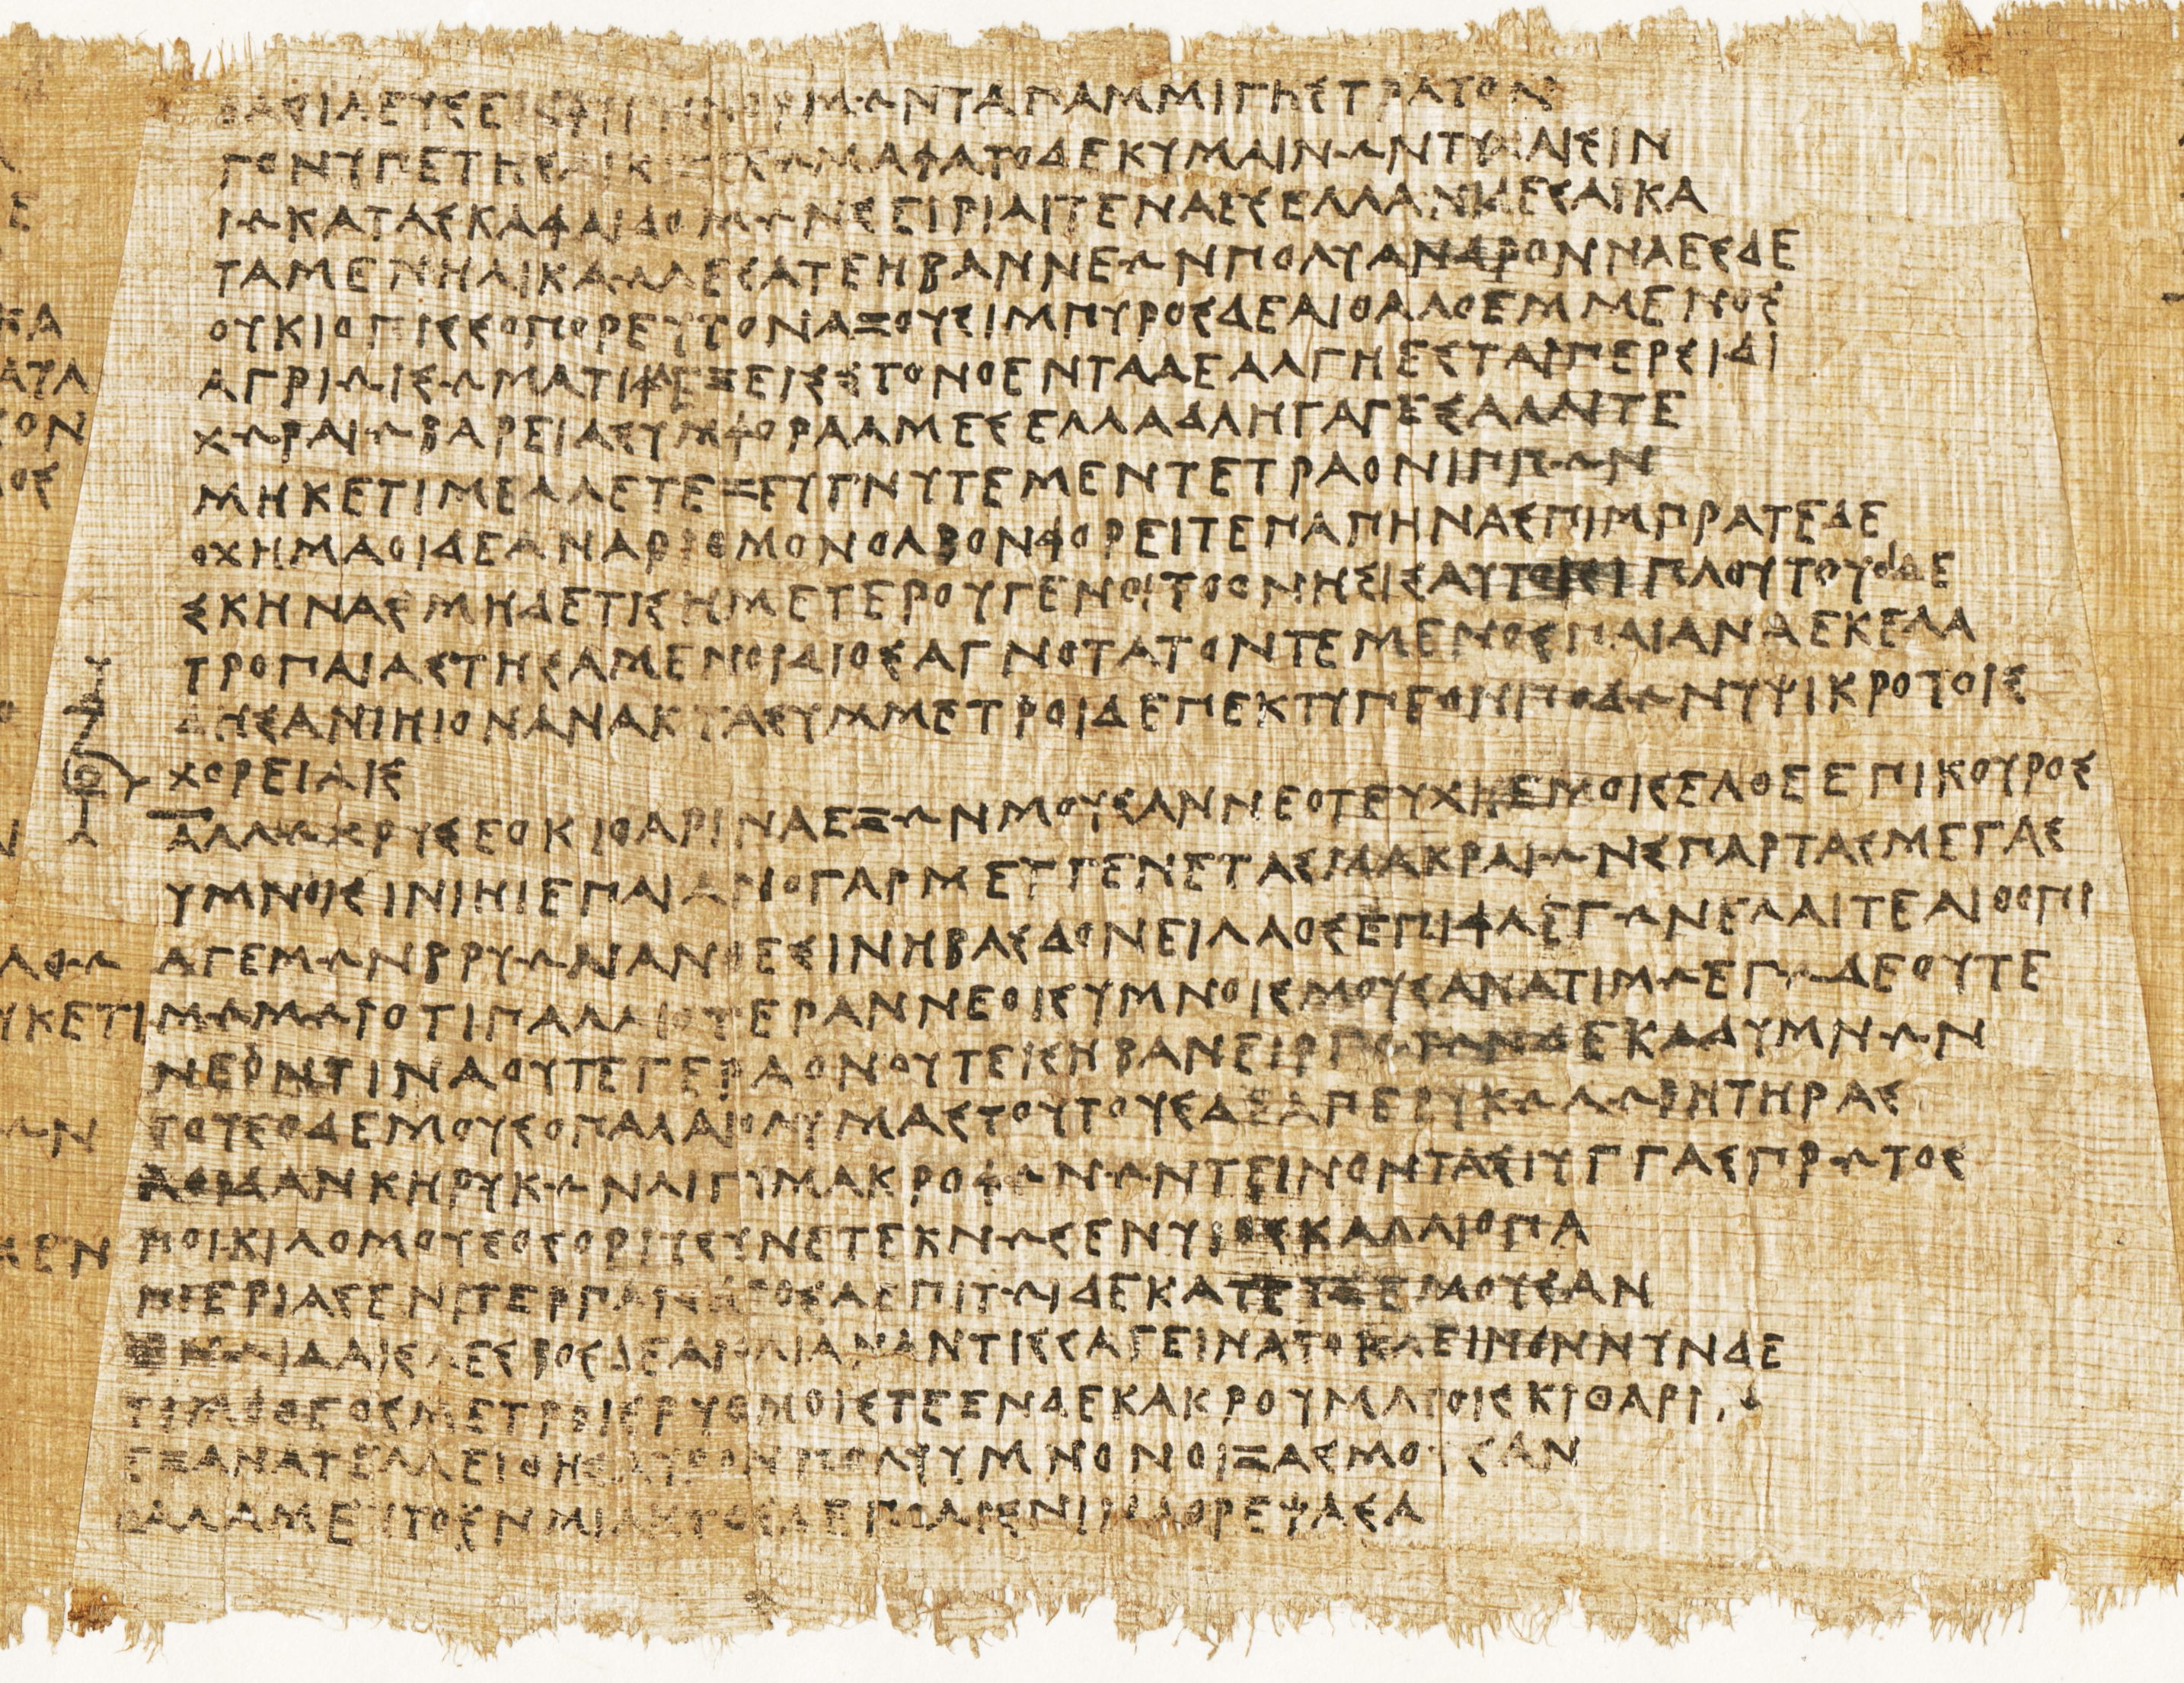 ΞΑ
ΟΝ
ΟΣ
ΥΚΕΤΙ
ΩΝ
ΣΕΝ
ΒΑΣΙΛΕΥΣΕΙΣΦΥΓΗΝΟΡΜΩΝΤΑΠΑΜΜΙΓΗΣΤΡΑΤΟΝ
ΓΟΝΥΠΕΤΗΣΑΙΚΙΖΕΣΩΜΑΦΑΤΟΔΕΚΥΜΑΙΝΩΝΤΥΧΑΙΣΙΝ
ΙΩΚΑΤΑΣΚΑΦΑΙΔΟΜΩΝΣΕΙΡΙΑΙΤΕΝΑΕΣΕΛΛΑΝΙΔΕΣΑΙΚΑ
ΤΑΜΕΝΗΛΙΚΑΩΛΕΣΑΤΕΗΒΑΝΝΕΩΝΠΟΛΥΑΝΔΡΟΝΝΑΕΣΔΕ
ΟΥΚΙΟΠΙΣΣΟΠΟΡΕΥΤΟΝΑΞΟΥΣΙΜΠΥΡΟΣΔΕΑΙΘΑΛΟΕΜΜΕΝΟΣ
ΑΓΡΙΩΙΣΩΜΑΤΙΦΛΕΞΕΙΣΣΤΟΝΟΕΝΤΑΔΕΑΛΓΗΕΣΤΑΙΠΕΡΣΙΔΙ
ΧΩΡΑΙΩΒΑΡΕΙΑΣΥΜΦΟΡΑΑΜΕΣΕΛΛΑΔΑΗΓΑΓΕΣΑΛΛΙΤΕ
ΜΗΚΕΤΙΜΕΛΛΕΤΕΖΕΥΓΝΥΤΕΜΕΝΤΕΤΡΑΟΝΙΠΠΩΝ
ΟΧΗΜΑΟΙΔΕΑΝΑΡΙΘΜΟΝΟΛΒΟΝΦΟΡΕΙΤΕΠΑΠΗΝΑΣΠΙΜΠΡΑΤΕΔΕ
ΣΚΗΝΑΣΜΗΔΕΤΙΣΗΜΕΤΕΡΟΥΓΕΝΟΙΤΟΟΝΗΣΙΣΑΥΤΟΙΣΙΠΛΟΥΤΟΥΟΙΔΕ
ΤΡΟΠΑΙΑΣΤΗΣΑΜΕΝΟΙΔΙΟΣΑΓΝΟΤΑΤΟΝΤΕΜΕΝΟΣΠΑΙΑΝΑΕΚΕΛΑ
ΔΗΣΑΝΙΗΙΟΝΑΝΑΚΤΑΣΥΜΜΕΤΡΟΙΔΕΠΕΚΤΥΠΕΟΝΠΟΔΩΝΥΨΙΚΡΟΤΟΙΣ
ΧΟΡΕΙΑΙΣ
ΑΛΛΩΧΡΥΣΕΟΚΙΘΑΡΙΝΑΕΞΩΝΜΟΥΣΑΝΝΕΟΤΕΥΧΗΕΜΟΙΣΕΛΘΕΕΠΙΚΟΥΡΟΣ
ΥΜΝΟΙΣΙΝΙΗΙΕΠΑΙΑΝΟΓΑΡΜΕΥΓΕΝΕΤΑΣΜΑΚΡΑΙΩΝΣΠΑΡΤΑΣΜΕΓΑΣ
ΑΓΕΜΩΝΒΡΥΩΝΑΝΘΕΣΙΝΗΒΑΣΔΟΝΕΙΛΑΟΣΕΠΙΦΛΕΓΩΝΕΛΑΙΤΕΑΙΘΟΠΙ
ΜΩΜΩΙΟΤΙΠΑΛΑΙΟΤΕΡΑΝΝΕΟΙΣΥΜΝΟΙΣΜΟΥΣΑΝΑΤΙΜΩΕΓΩΔΕΟΥΤΕ
ΝΕΟΝΤΙΝΑΟΥΤΕΓΕΡΑΟΝΟΥΤΕΙΣΗΒΑΝΕΙΡΓΩΤΩΝΔΕΚΑΔΥΜΝΩΝ
ΤΟΥΣΔΕΜΟΥΣΟΠΑΛΑΙΟΛΥΜΑΣΤΟΥΤΟΥΣΔΕΑΠΕΡΥΚΩΛΩΒΗΤΗΡΑΣ
ΑΟΙΔΑΝΚΗΡΥΚΩΝΛΙΓΥΜΑΚΡΟΦΩΝΩΝΤΕΙΝΟΝΤΑΣΙΥΓΓΑΣΠΡΩΤΟΣ
ΠΟΙΚΙΛΟΜΟΥΣΟΣΟΡΙΥΣΥΝΕΤΕΚΝΩΣΕΝΥΙΟΣΚΑΛΛΙΟΠΑ
ΠΙΕΡΙΑΣΕΝΙΤΕΡΠΑΝΔΡΟΣΑΕΠΙΤΩΙΔΕΚΑΤΕΥΞΕΜΟΥΣΑΝ
ΕΝΩΙΔΑΙΣΛΕΣΒΟΣΔΕΑΙΟΛΙΑΝΑΝΤΙΣΣΑΓΕΙΝΑΤΟΚΛΕΙΝΟΝΝΥΝΔΕ
ΤΙΜΟΘΕΟΣΜΕΤΡΟΙΣΡΥΘΜΟΙΣΤΕΕΝΔΕΚΑΚΡΟΥΜΑΤΟΙΣΚΙΘΑΡΙ
ΕΞΑΝΑΤΕΛΛΕΙΘΗΣΑΥΡΟΝΠΟΛΥΥΜΝΟΝΟΙΞΑΣΜΟΥΣΑΝ
ΘΑΛΑΜΕΥΤΟΝΜΙΛΗΤΟΣΔΕΠΟΛΙΣΝΙΝΑΘΡΕΨΑΣΑ